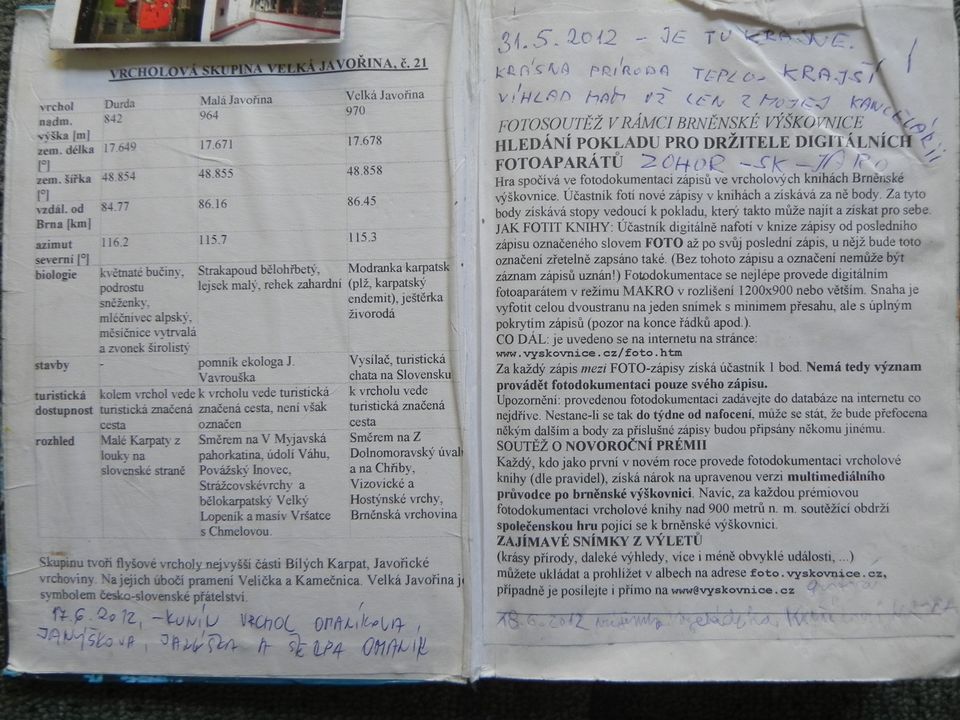 VRCHOLOVÁ SKUPINA VELKÁ JAVOŘINA, č. 21
vrchol Durda Malá Javořina Velká Javořina
nadm. výška [m] 842 964 970
zem. délka [°] 17.649 17.671 17.678
zem. šířka [°] 48.854 48.855 48.858
vzdál. od Brna [km] 84.77 86.16 86.45
azimut severní [°] 116.2 115.7 115.3
biologie
květnaté bučiny,
podrostu
sněženky,
mléčnivec alpský,
měsíčnice vytrvalá
a zvonek širolistý
Strakapoud bělohřbetý,
lejsek malý, rehek zahradní
Modranka karpatsk
(plž, karpatský
endemit), ještěrka
živorodá
stavby
-
pomník ekologa J.
Vavrouška
Vysílač, turistická
chata na Slovensku
turistická
dostupnost
kolem vrchol vede
turistická značená
cesta
k vrcholu vede turistická
značená cesta, není však
označen
k vrcholu vede
turistická značená
cesta
rozhled
Malé Karpaty z
louky na
slovenské straně
Směrem na V Myjavská
pahorkatina, údolí Váhu,
Povážský Inovec,
Strážcovskévrchy a
bělokarpatský Velký
Lopeník a masív Vršatce
s Chmelovou.
Směrem na Z
Dolnomoravský úval
a na Chřiby,
Vizovické a
Hostýnské vrchy,
Brněnská vrchovina
Skupinu tvoří flyšové vrcholy nejvyšší části Bílých Karpat, Javořické
vrchoviny. Na jejich úbočí pramení Velička a Kamečnica. Velká Javořina je
symbolem česko-slovenské přátelství.
17.6.2012, - KUNÍN VRCHOL OMANÍKOVA,
JANÝŠKOVA, A OMANÍK
31.5.2012 - JE TU KRÁSNE.
KRÁSNA PRÍRODA TEPLO. KRAJŠÍ
VÍHLAD MÁM UŽ LEN Z MOJEJ KANCELÁRII
FOTOSOUTĚŽ V RÁMCI BRNĚNSKÉ VÝŠKOVNICE
HLEDÁNÍ POKLADU PRO DRŽITELE DIGITÁLNÍCH
FOTOAPARÁTŮ ZOHOR - SK - JARO
Hra spočívá ve fotodokumentaci zápisů ve vrcholových knihách Brněnské
výškovnice. Účastník fotí nové zápisy v knihách a získává za ně body. Za tyto
body získává stopy vedoucí k pokladu, který takto může najít a získat pro sebe.
JAK FOTIT KNIHY: Účastník digitálně nafotí v knize zápisy od posledního
zápisu označeného slovem FOTO až po svůj poslední zápis, u nějž bude toto
označení zřetelně zapsáno také. (Bez tohoto zápisu a označení nemůže být
záznam zápisů uznán!) Fotodokumentace se nejlépe provede digitálním
fotoaparátem v režimu MAKRO v rozlišení 1200x900 nebo větším. Snaha je
vyfotit celou dvoustranu na jeden snímek s minimem přesahu, ale s úplným
pokrytím zápisů (pozor na konce řádků apod.).
CO DÁL: je uvedeno se na internetu na stránce:
www.vyskovnice.cz/foto.htm
Za každý zápis mezi FOTO-zápisy získá účastník 1 bod. Nemá tedy význam
provádět fotodokumentaci pouze svého zápisu.
Upozornění: provedenou fotodokumentaci zadávejte do databáze na internetu co
nejdříve. Nestane-li se tak do týdne od nafocení, může se stát, že bude přefocena
někým dalším a body za příslušné zápisy budou připsány někomu jinému.
SOUTĚŽ O NOVOROČNÍ PRÉMII
Každý, kdo jako první v novém roce provede fotodokumentaci vrcholové
knihy (dle pravidel), získá nárok na upravenou verzi multimediálního
průvodce po brněnské výškovnici. Navíc, za každou prémiovou
fotodokumentaci vrcholové knihy nad 900 metrů n. m. soutěžící obdrží
společenskou hru pojící se k brněnské výškovnici.
ZAJÍMAVÉ SNÍMKY Z VÝLETŮ
(krásy přírody, daleké výhledy, více i méně obvyklé události, ...)
můžete ukládat a prohlížet v albech na adrese foto.vyskovnice.cz,
případně je posílejte i přímo na www@vyskovnice.cz
18.6.2012